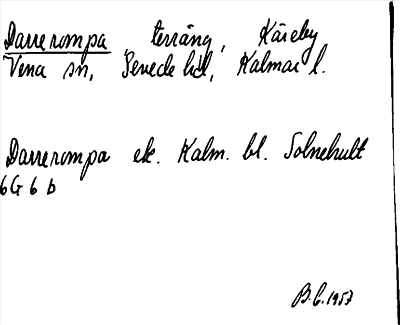 Darrerompa, terräng, Käreby
Vena sn, Sevede hd, Kalmar l.
Darrerompa ek. Kalm. bl. Solnehult
6G 6 b
B.C. 1957